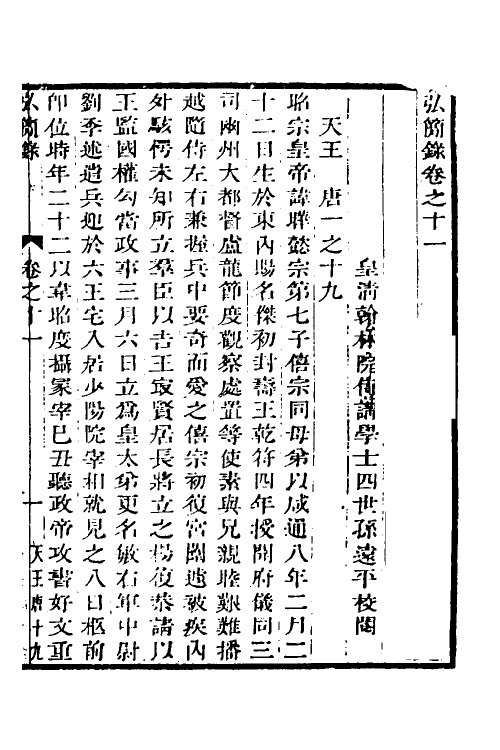 弘簡錄卷之十一
皇淸翰林院侍講學士四世孫遠平校閱
天王　唐一之十九
昭宗皇帝諱曄懿宗第七子僖宗同母弟以咸通八年二月二
十二日生於東內賜名傑初封壽王乾符四年授開府儀同三
司幽州大都督盧龍節度觀察處置等使素與兄親睦艱難播
越隨侍左右兼握兵中要奇而愛之僖宗初復宮闕遽被疾內
外駭愕未知所立羣臣以吉王最賢居長將立之楊復恭請以
王監國權勾當政事三月六日立爲皇太弟更名敏右軍中尉
劉季述遣兵迎於六王宅入居少陽院宰相就見之八日柩前
卽位時年二十二以韋昭度攝冢宰巳丑聽政帝攻書好文重
弘簡錄
卷之十一
一
天王唐十九